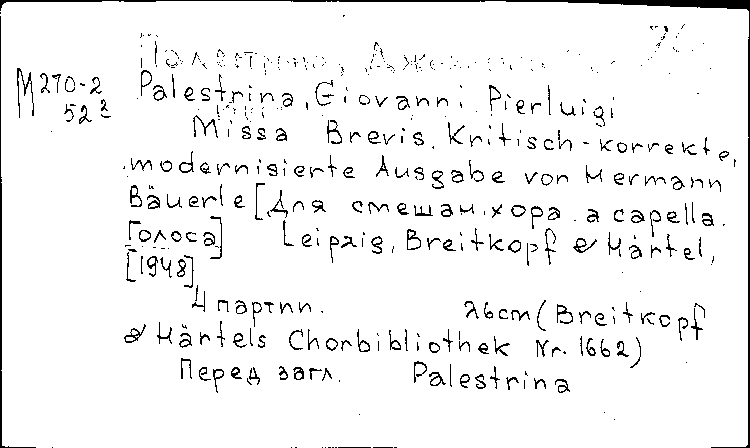 Палестрина, Джованни
M 270-2 Palestrina, Giovanni Pierluigi
52 2 Missa Brevis. Kritisch-korrekte,
modernisierte Ausgabe von Hermann
Bäuerle [Для смешан. хора. a capella.
Голоса] Leipzig, Breitkopf & Härtel,
[1948]
4 партии. 26cm (Breitkopf
& Härtels Chorbibliothek Nr. 1662)
Перед загл. Palestrina